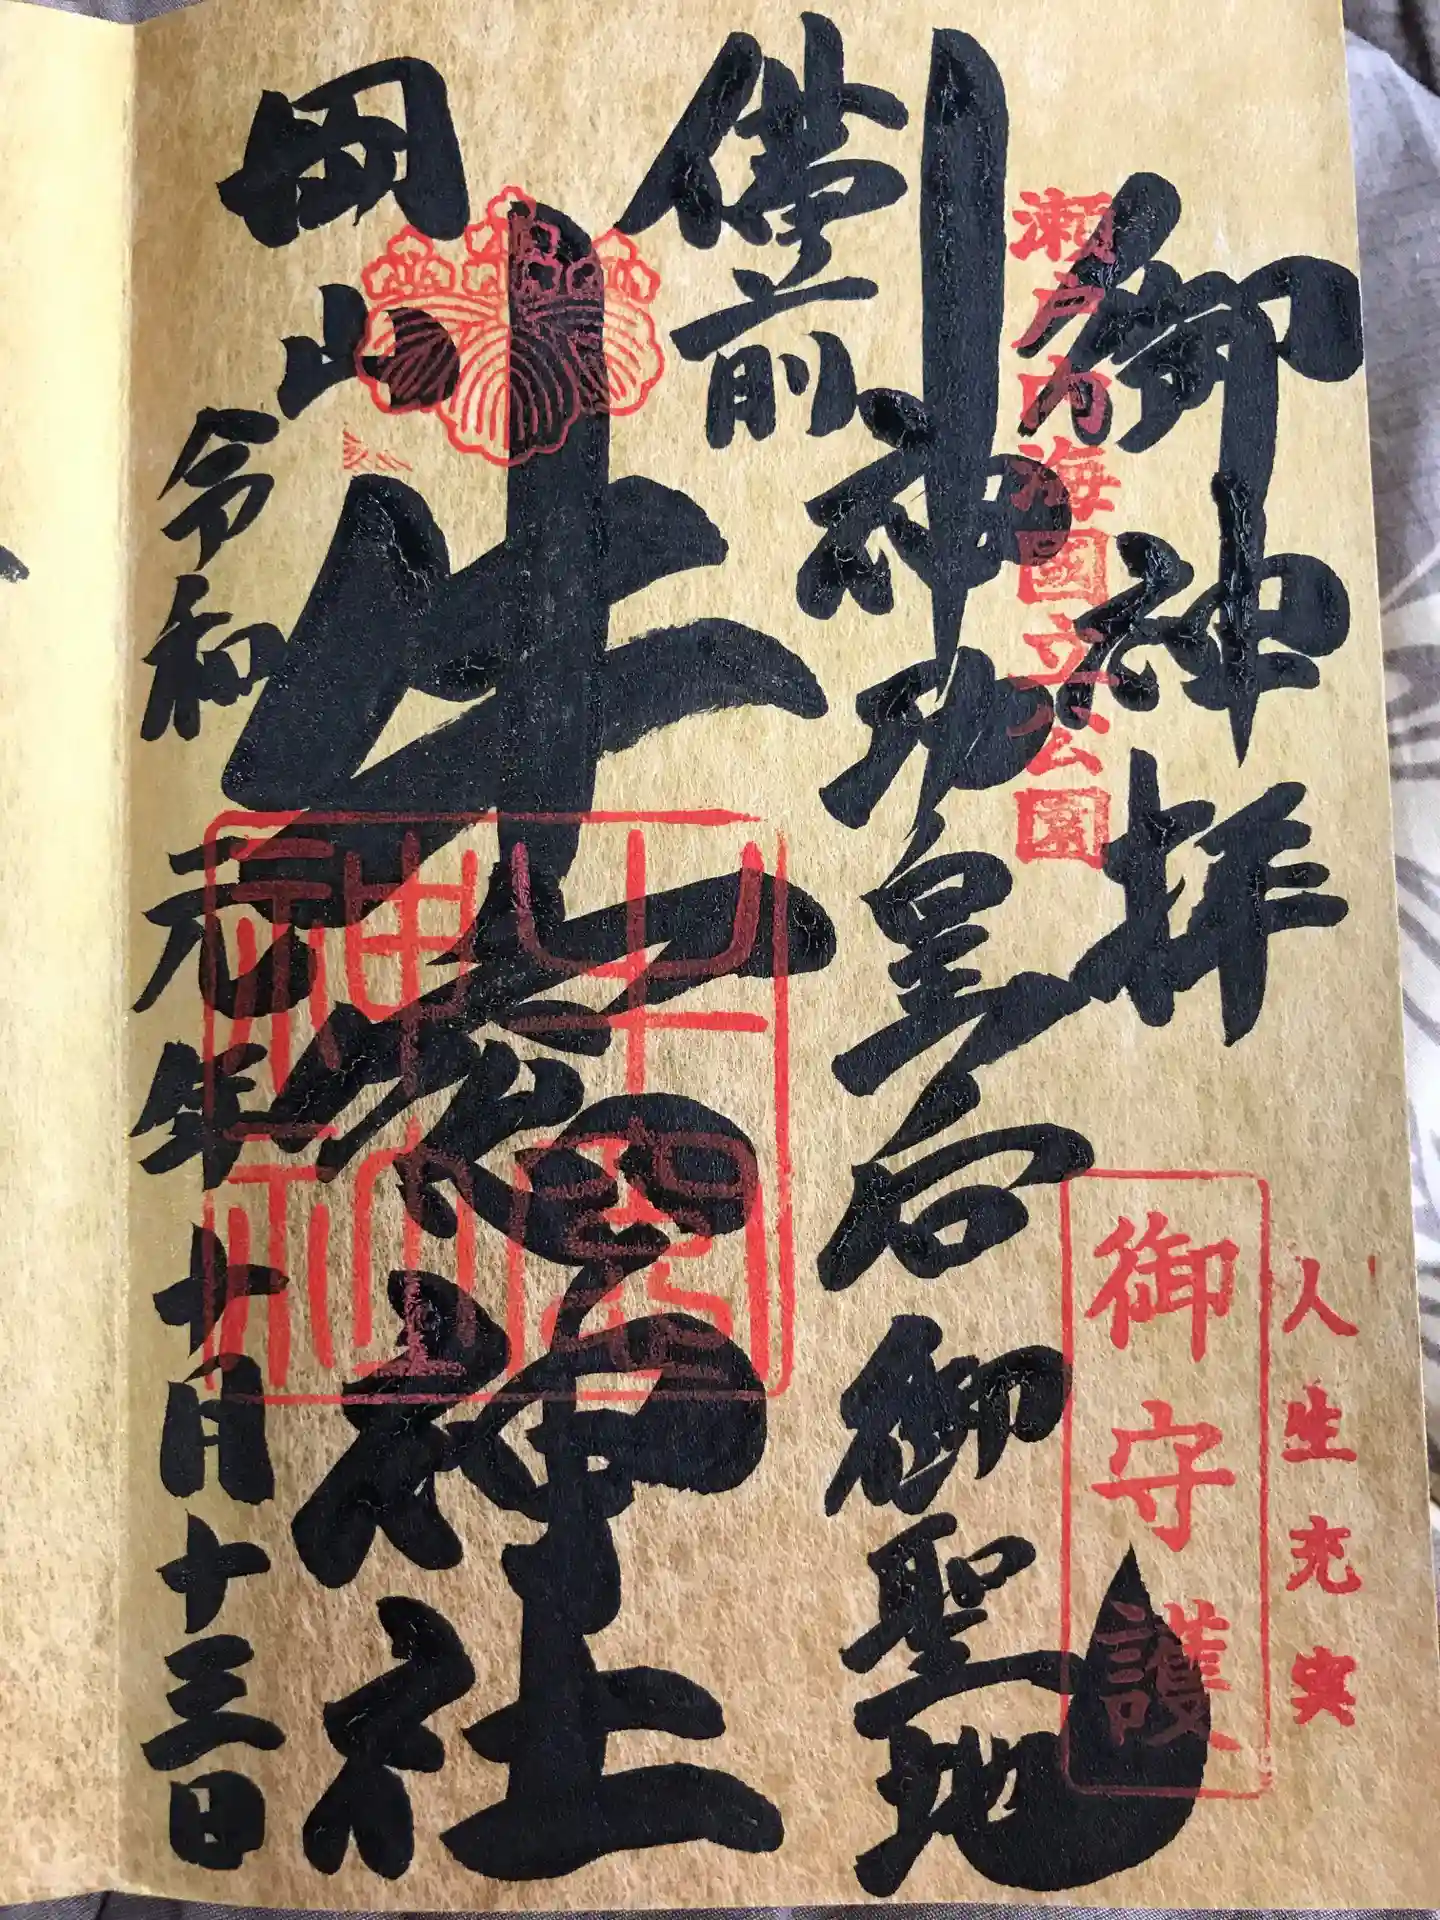 人生充実
御守護
御神拝
瀬戸内海國立公園
神功皇后御聖地
備前
牛窓神社
牛窓神社
岡山
令和元年十月十三日